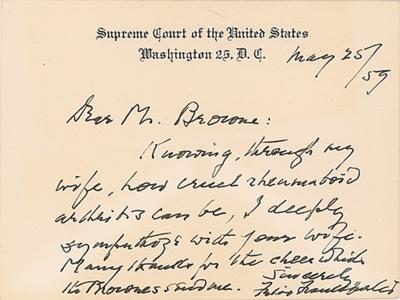 Supreme Court of the United States
Washington 25, D. C.
May 25/59
Dear Mr. Browne:
Knowing, through my
wife, how cruel rheumatoid
arthritis can be, I deeply
sympathize with your wife.
Many thanks for the cheer which
the Brownes send me. Sincerely
Felix Frankfurter